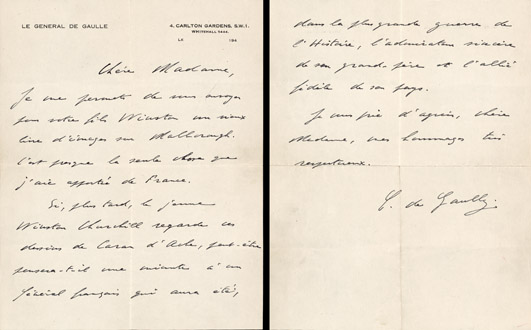 LE GENERAL DE GAULLE
4, CARLTON GARDENS, S.W.1.
WHITEHALL 5444.
LE 194
Chère Madame,
Je me permets de vous envoyer
pour votre fils Winston un vieux
livre d'images sur Malborough.
C'est presque la seule chose que
j'aie apportée de France.
Si, plus tard, le jeune
Winston Churchill regarde ces
dessins de Caran d'Ache, peut-être
pensera-t-il une minute à un
Général français qui aura été,
dans la plus grande guerre de
l'Histoire, l'admirateur sincère
de son grand-père et l'allié
fidèle de son pays.
Je vous prie d'agréer, chère
Madame, mes hommages très
respectueux.
C. de Gaulle